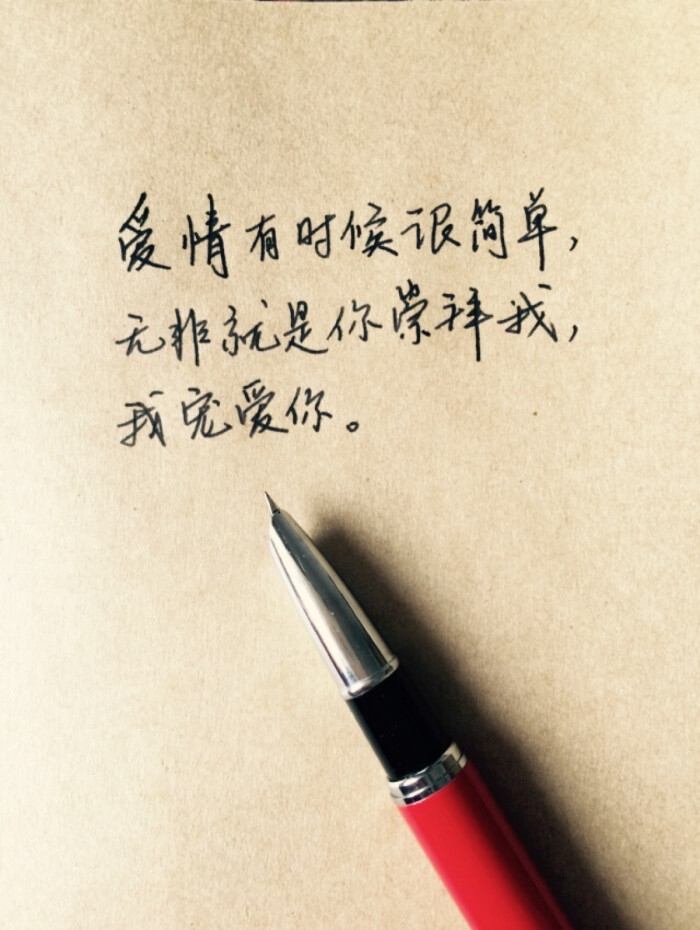 爱情有时候很简单，
无非就是你崇拜我，
我宠爱你。